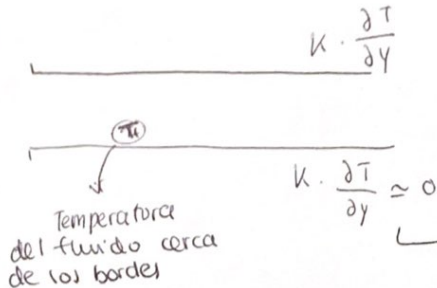 K · ∂T/∂y
K · ∂T/∂y ≃ 0
Temperatura
del fluido cerca
de los bordes